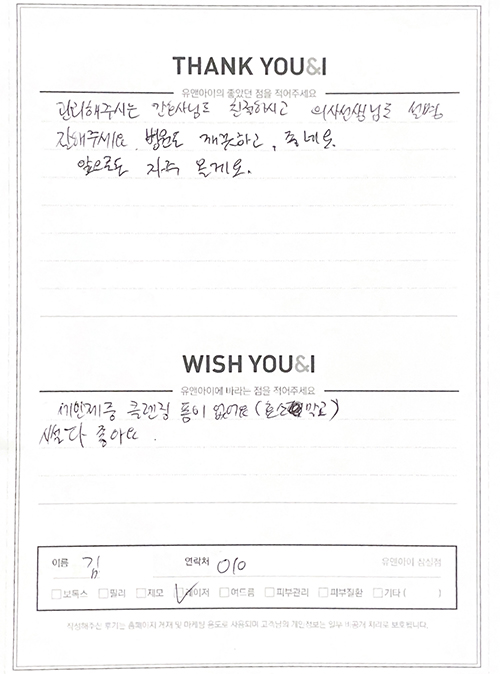 THANK YOU&I
유앤아이의 좋았던 점을 적어주세요
관리해주시는 간호사님도 친절하시고 의사선생님도 설명
잘해주세요. 병원도 깨끗하고, 좋네요.
앞으로도 자주 올게요.
WISH YOU&I
유앤아이에 바라는 점을 적어주세요
세안제중 클렌징 폼이 없어요 (
다 좋아요.
이름 김 연락처 010 유앤아이 삼성점
보톡스 필러 제모 레이저 여드름 피부관리 피부질환 기타 ( )
작성해주신 후기는 홈페이지 게재 및 마케팅 용도로 사용되며 고객님의 개인정보는 일부 비공개 처리로 보호됩니다.